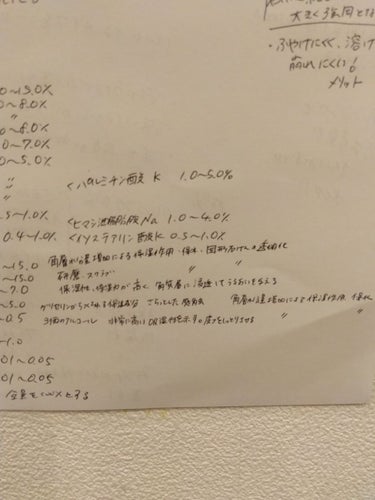 大きく3個とな
・ふやけにくく、溶け
崩れにくい!
メリット
0~15.0%
0~8.0%
〃
0~8.0%
0~7.0%
0~5.0%
〃
〃
<パルミチン酸K 1.0~5.0%
.5~1.0% <ヒマシ油脂肪酸Na 1.0~4.0%
0.4~1.0% <イソステアリン酸K 0.5~1.0%
~15.0 角層水分量増加による保湿作用・保水・固形石けんの透明化
~15.0 研磨 スクラブ 〃 〃
~7.0 保湿性、保水力が高く 角質層に浸透してうるおいを与える
~5.0 グリセリンから 保湿成分 さらっとした使用感 角層水分量増加による保湿作用、保水
~0.5 3価のアルコール 非常に高い吸湿性を示す。皮フをしっとりさせる 〃 〃
~1.0
01~0.05
01~0.05
全量を100%とする